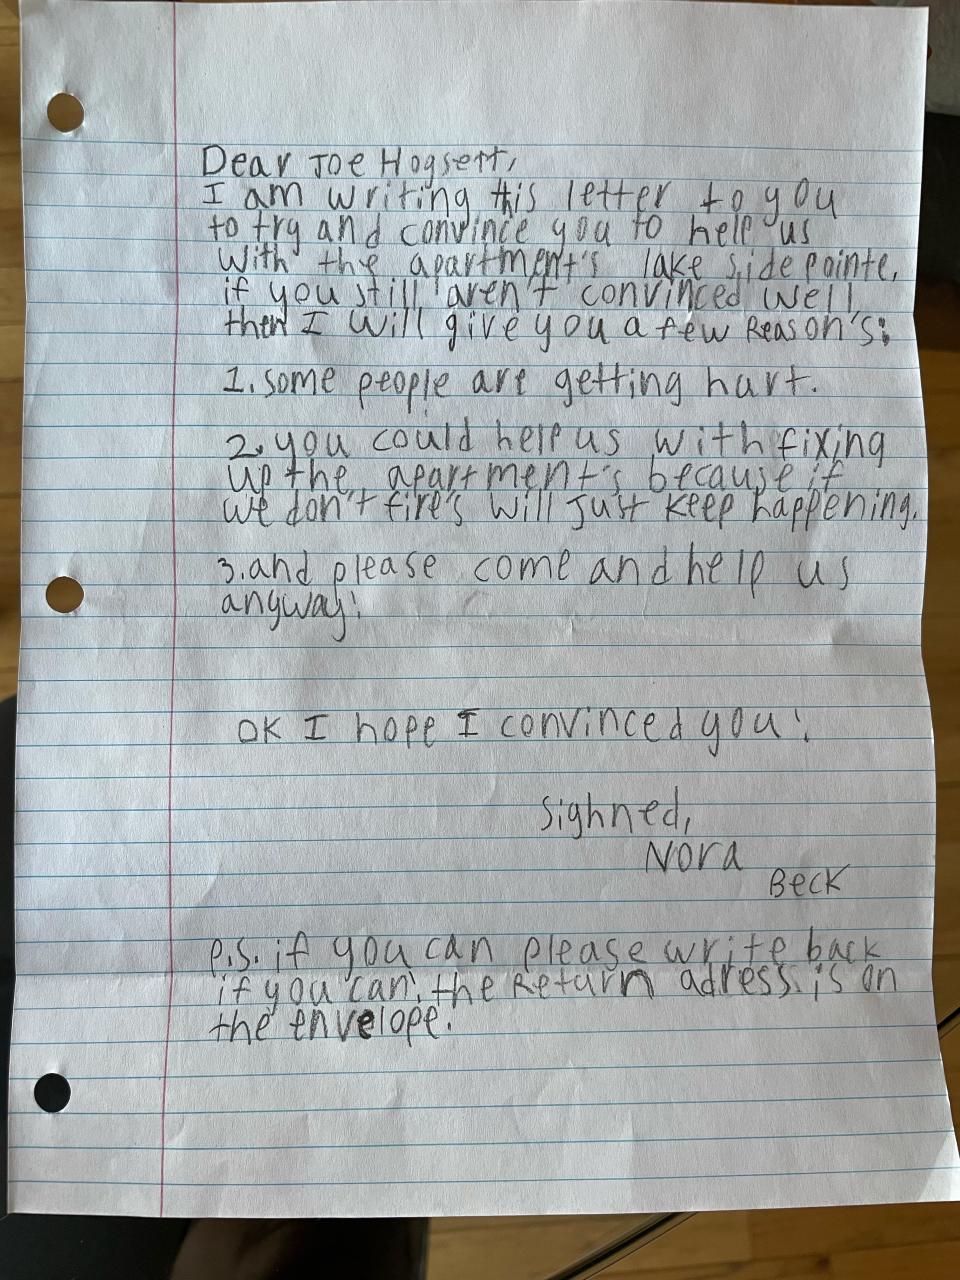 Dear Joe Hogsett,
I am writing this letter to you
to try and convince you to help us
with the apartment's lake side pointe,
if you still aren't convinced well
then I will give you a few Reason's:
1. some people are getting hurt.
2. you could help us with fixing
up the apartment's because if
we don't fire's will just keep happening.
3. and please come and help us
anyway!
OK I hope I convinced you!
Sighned,
Nora
Beck
P.S. if you can please write back
if you can, the Return adress is on
the envelope.